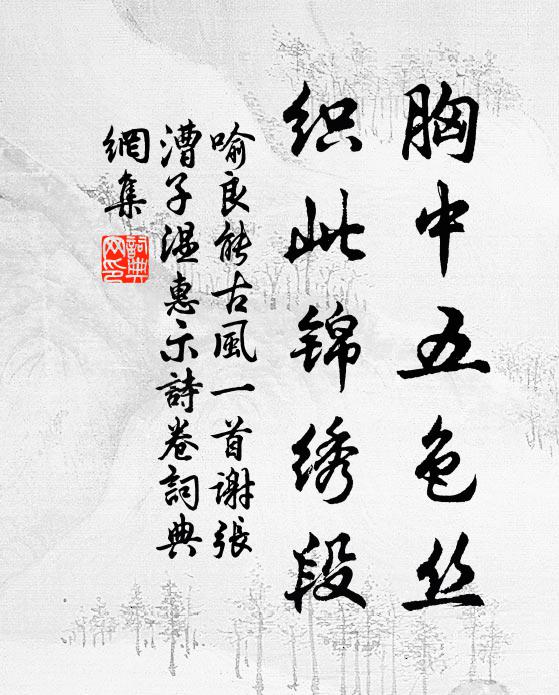 胸中五色丝
织此锦绣段
喻良能古風一首谢張
漕子温惠示詩卷詞典
網集
詞典網印